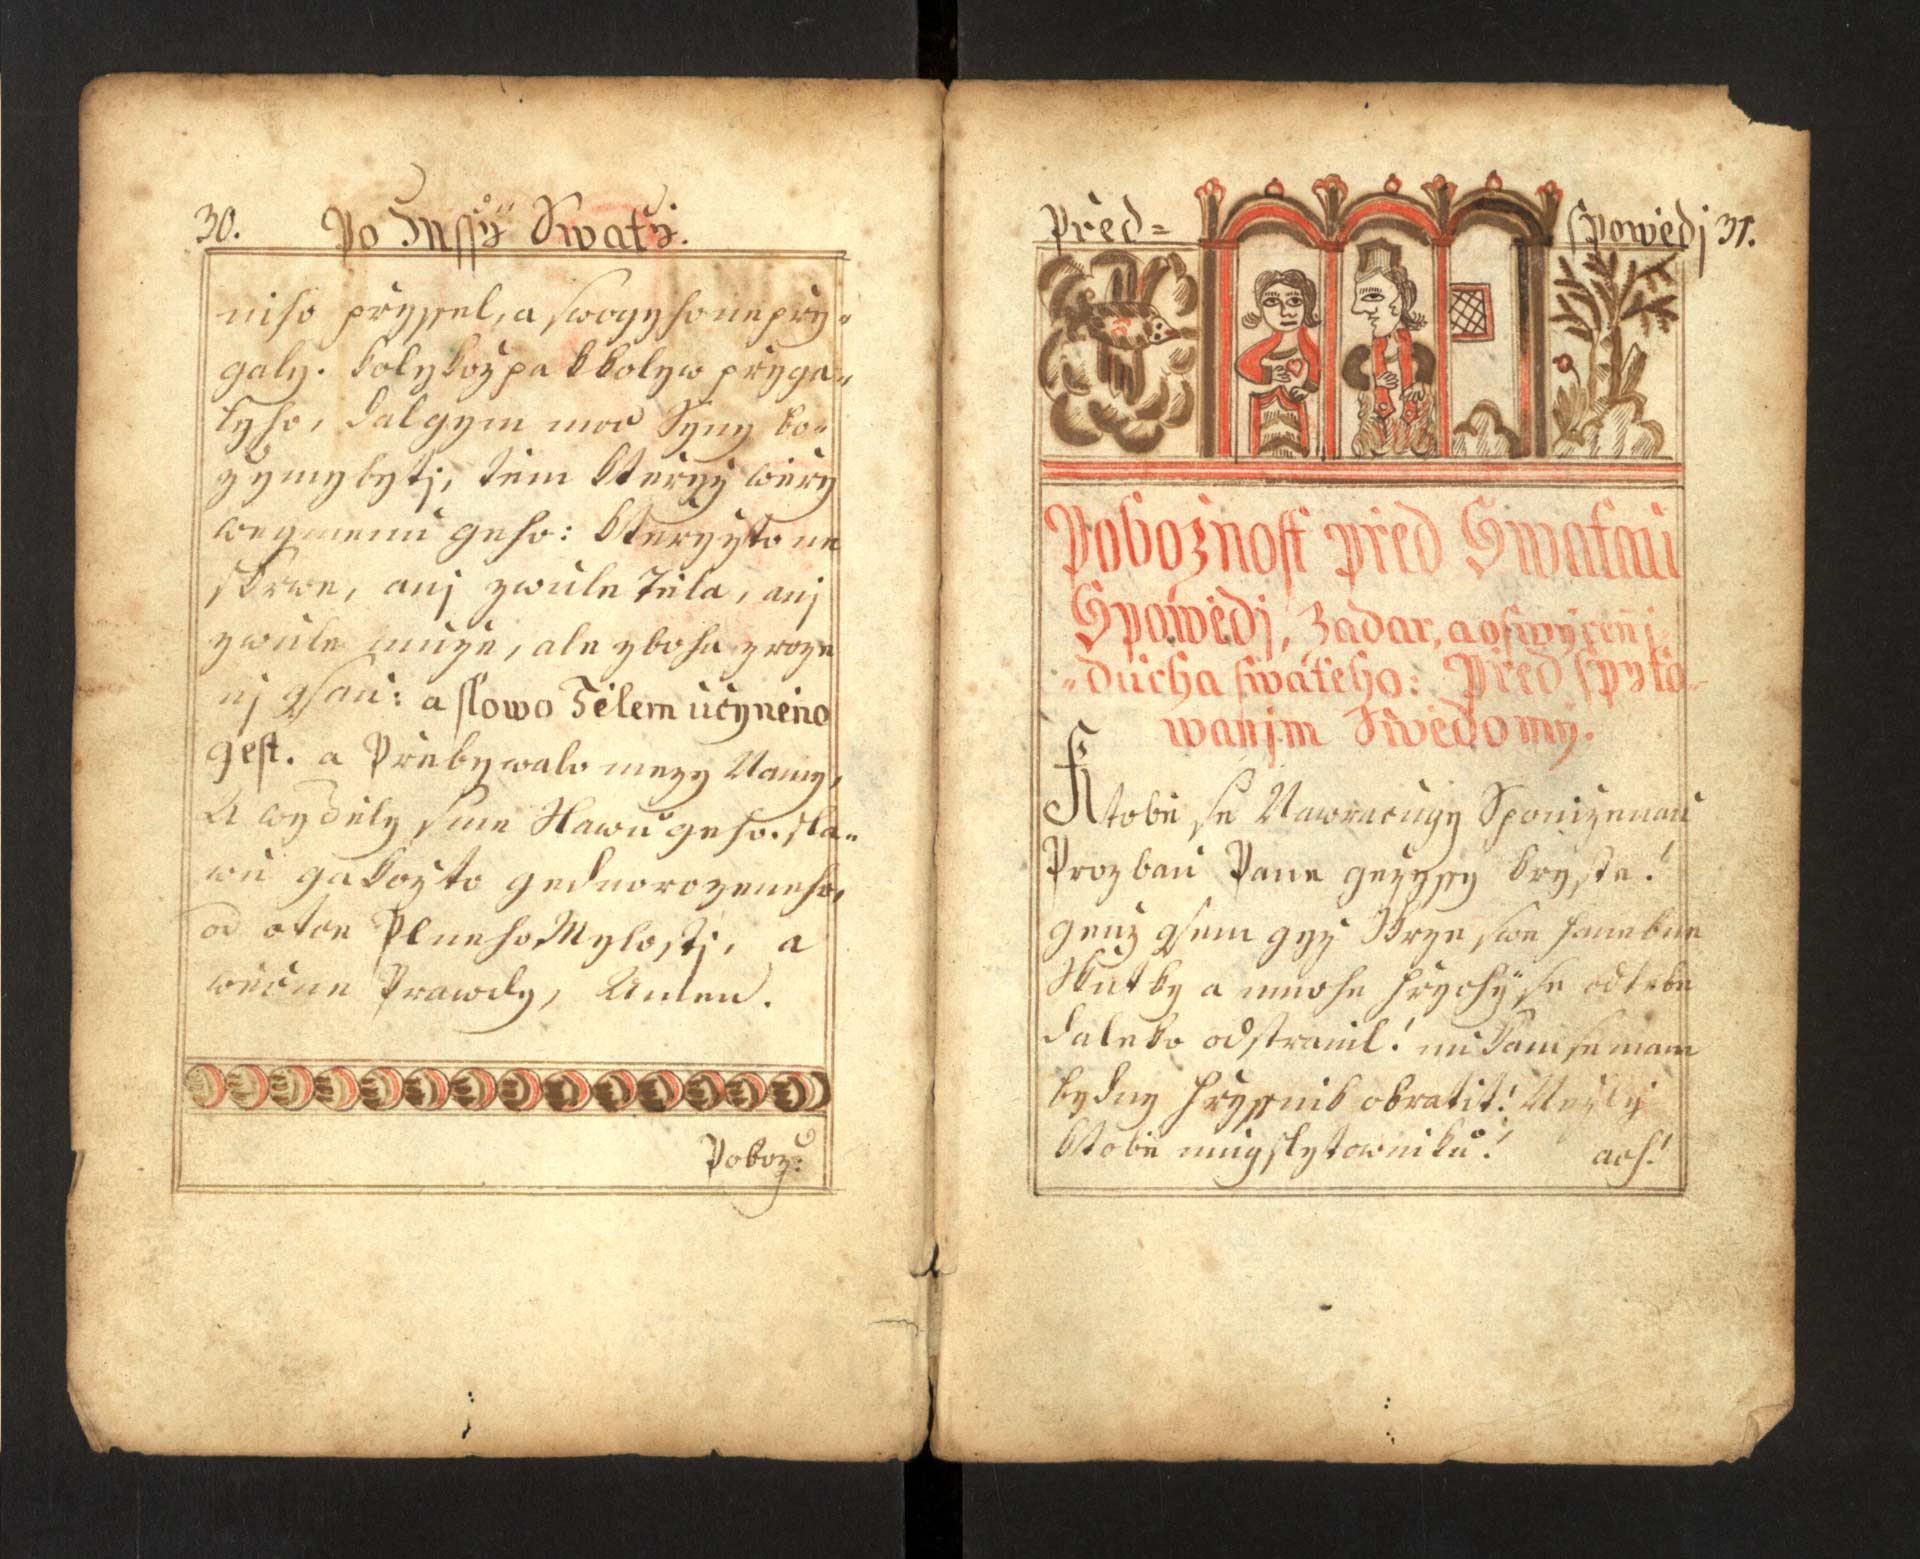 30. Po Mssÿ Swatÿ.
niho přyssel, a swogyho nepřy-
galy. kolykožpakkolyw přyga-
lyho, dalgym moc Syny bo-
žymy byti, tem kteryž wěry
wegmenu geho: kteryžto ne
skrwe, anj zwule Tela, anj
zwule muže, ale zboha zroze
nj gsau: a slowo Tělem učyněno
gest. a Přebywalo mezy Namy,
A wyděly sme slawu geho. sla-
wu gakožto gednorozeneho,
od otce Plneho Mylosti, a
wěčne Prawdy, Amen.
Pobož:
Před= spowědj 31.
Pobožnost před Swatau
Spowědj, Zadar, a oswyceni
ducha swateho: Před spyto-
wanjm Swědomÿ.
K tobě se Nawracugy Sponiženau
Prozbau Pane gežyssy kryste!
genž gsem gyž skrze swe hanebne
skutky a mnohe hřychÿ se odtebe
daleko odstranil! nu kam se mam
bydny hřyssnik obratit! Nežly
ktobě mug slytowniku! ach!